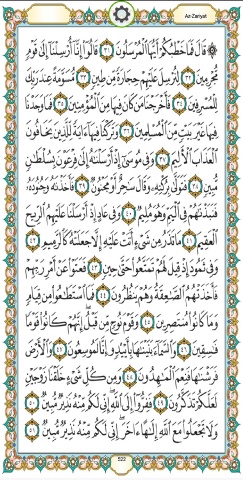 Az-Zariyat
۞ قَالَ فَمَا خَطْبُكُمْ أَيُّهَا ٱلْمُرْسَلُونَ ٣١ قَالُوٓا۟ إِنَّآ أُرْسِلْنَآ إِلَىٰ قَوْمٍ
مُّجْرِمِينَ ٣٢ لِنُرْسِلَ عَلَيْهِمْ حِجَارَةً مِّن طِينٍ ٣٣ مُّسَوَّمَةً عِندَ رَبِّكَ
لِلْمُسْرِفِينَ ٣٤ فَأَخْرَجْنَا مَن كَانَ فِيهَا مِنَ ٱلْمُؤْمِنِينَ ٣٥ فَمَا وَجَدْنَا
فِيهَا غَيْرَ بَيْتٍ مِّنَ ٱلْمُسْلِمِينَ ٣٦ وَتَرَكْنَا فِيهَآ ءَايَةً لِّلَّذِينَ يَخَافُونَ
ٱلْعَذَابَ ٱلْأَلِيمَ ٣٧ وَفِى مُوسَىٰٓ إِذْ أَرْسَلْنَٰهُ إِلَىٰ فِرْعَوْنَ بِسُلْطَٰنٍ
مُّبِينٍ ٣٨ فَتَوَلَّىٰ بِرُكْنِهِۦ وَقَالَ سَٰحِرٌ أَوْ مَجْنُونٌ ٣٩ فَأَخَذْنَٰهُ وَجُنُودَهُۥ
فَنَبَذْنَٰهُمْ فِى ٱلْيَمِّ وَهُوَ مُلِيمٌ ٤٠ وَفِى عَادٍ إِذْ أَرْسَلْنَا عَلَيْهِمُ ٱلرِّيحَ
ٱلْعَقِيمَ ٤١ مَا تَذَرُ مِن شَىْءٍ أَتَتْ عَلَيْهِ إِلَّا جَعَلَتْهُ كَٱلرَّمِيمِ ٤٢
وَفِى ثَمُودَ إِذْ قِيلَ لَهُمْ تَمَتَّعُوا۟ حَتَّىٰ حِينٍ ٤٣ فَعَتَوْا۟ عَنْ أَمْرِ رَبِّهِمْ
فَأَخَذَتْهُمُ ٱلصَّٰعِقَةُ وَهُمْ يَنظُرُونَ ٤٤ فَمَا ٱسْتَطَٰعُوا۟ مِن قِيَامٍ
وَمَا كَانُوا۟ مُنتَصِرِينَ ٤٥ وَقَوْمَ نُوحٍ مِّن قَبْلُ إِنَّهُمْ كَانُوا۟ قَوْمًا
فَٰسِقِينَ ٤٦ وَٱلسَّمَآءَ بَنَيْنَٰهَا بِأَيْي۟دٍ وَإِنَّا لَمُوسِعُونَ ٤٧ وَٱلْأَرْضَ
فَرَشْنَٰهَا فَنِعْمَ ٱلْمَٰهِدُونَ ٤٨ وَمِن كُلِّ شَىْءٍ خَلَقْنَا زَوْجَيْنِ
لَعَلَّكُمْ تَذَكَّرُونَ ٤٩ فَفِرُّوٓا۟ إِلَى ٱللَّهِ إِنِّى لَكُم مِّنْهُ نَذِيرٌ مُّبِينٌ ٥٠
وَلَا تَجْعَلُوا۟ مَعَ ٱللَّهِ إِلَٰهًا ءَاخَرَ إِنِّى لَكُم مِّنْهُ نَذِيرٌ مُّبِينٌ ٥١
522